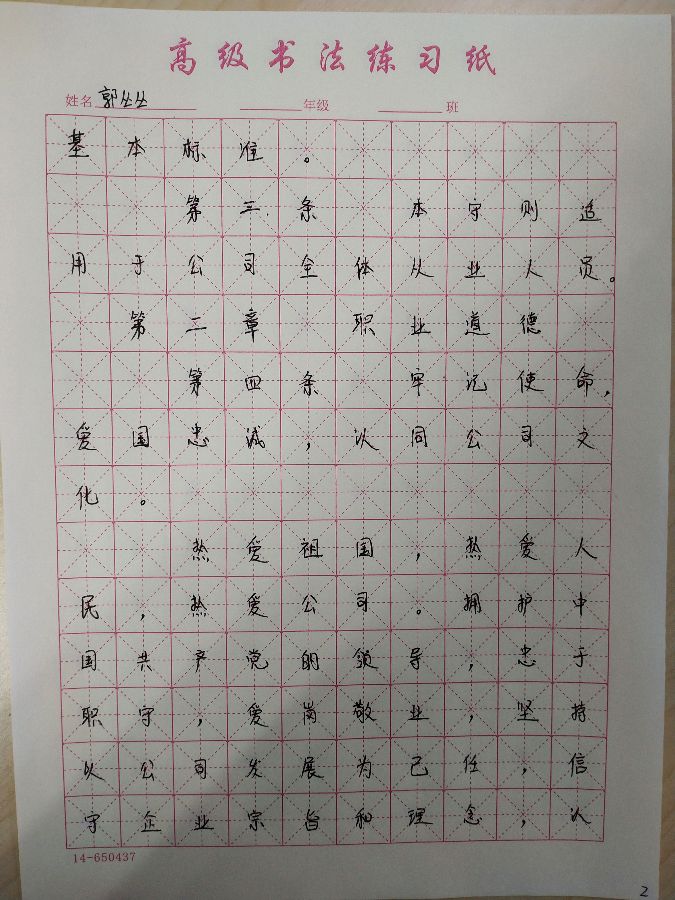 高级书法练习纸
姓名 郭丛丛 年级 班
基本标准。
第三条 本守则适
用于公司全体从业人员。
第二章 职业道德
第四条 牢记使命,
爱国忠诚,认同公司文
化。
热爱祖国,热爱人
民,热爱公司。拥护中
国共产党的领导,忠于
职守,爱岗敬业,坚持
以公司发展为己任,信
守企业宗旨和理念,认
14-650437
2